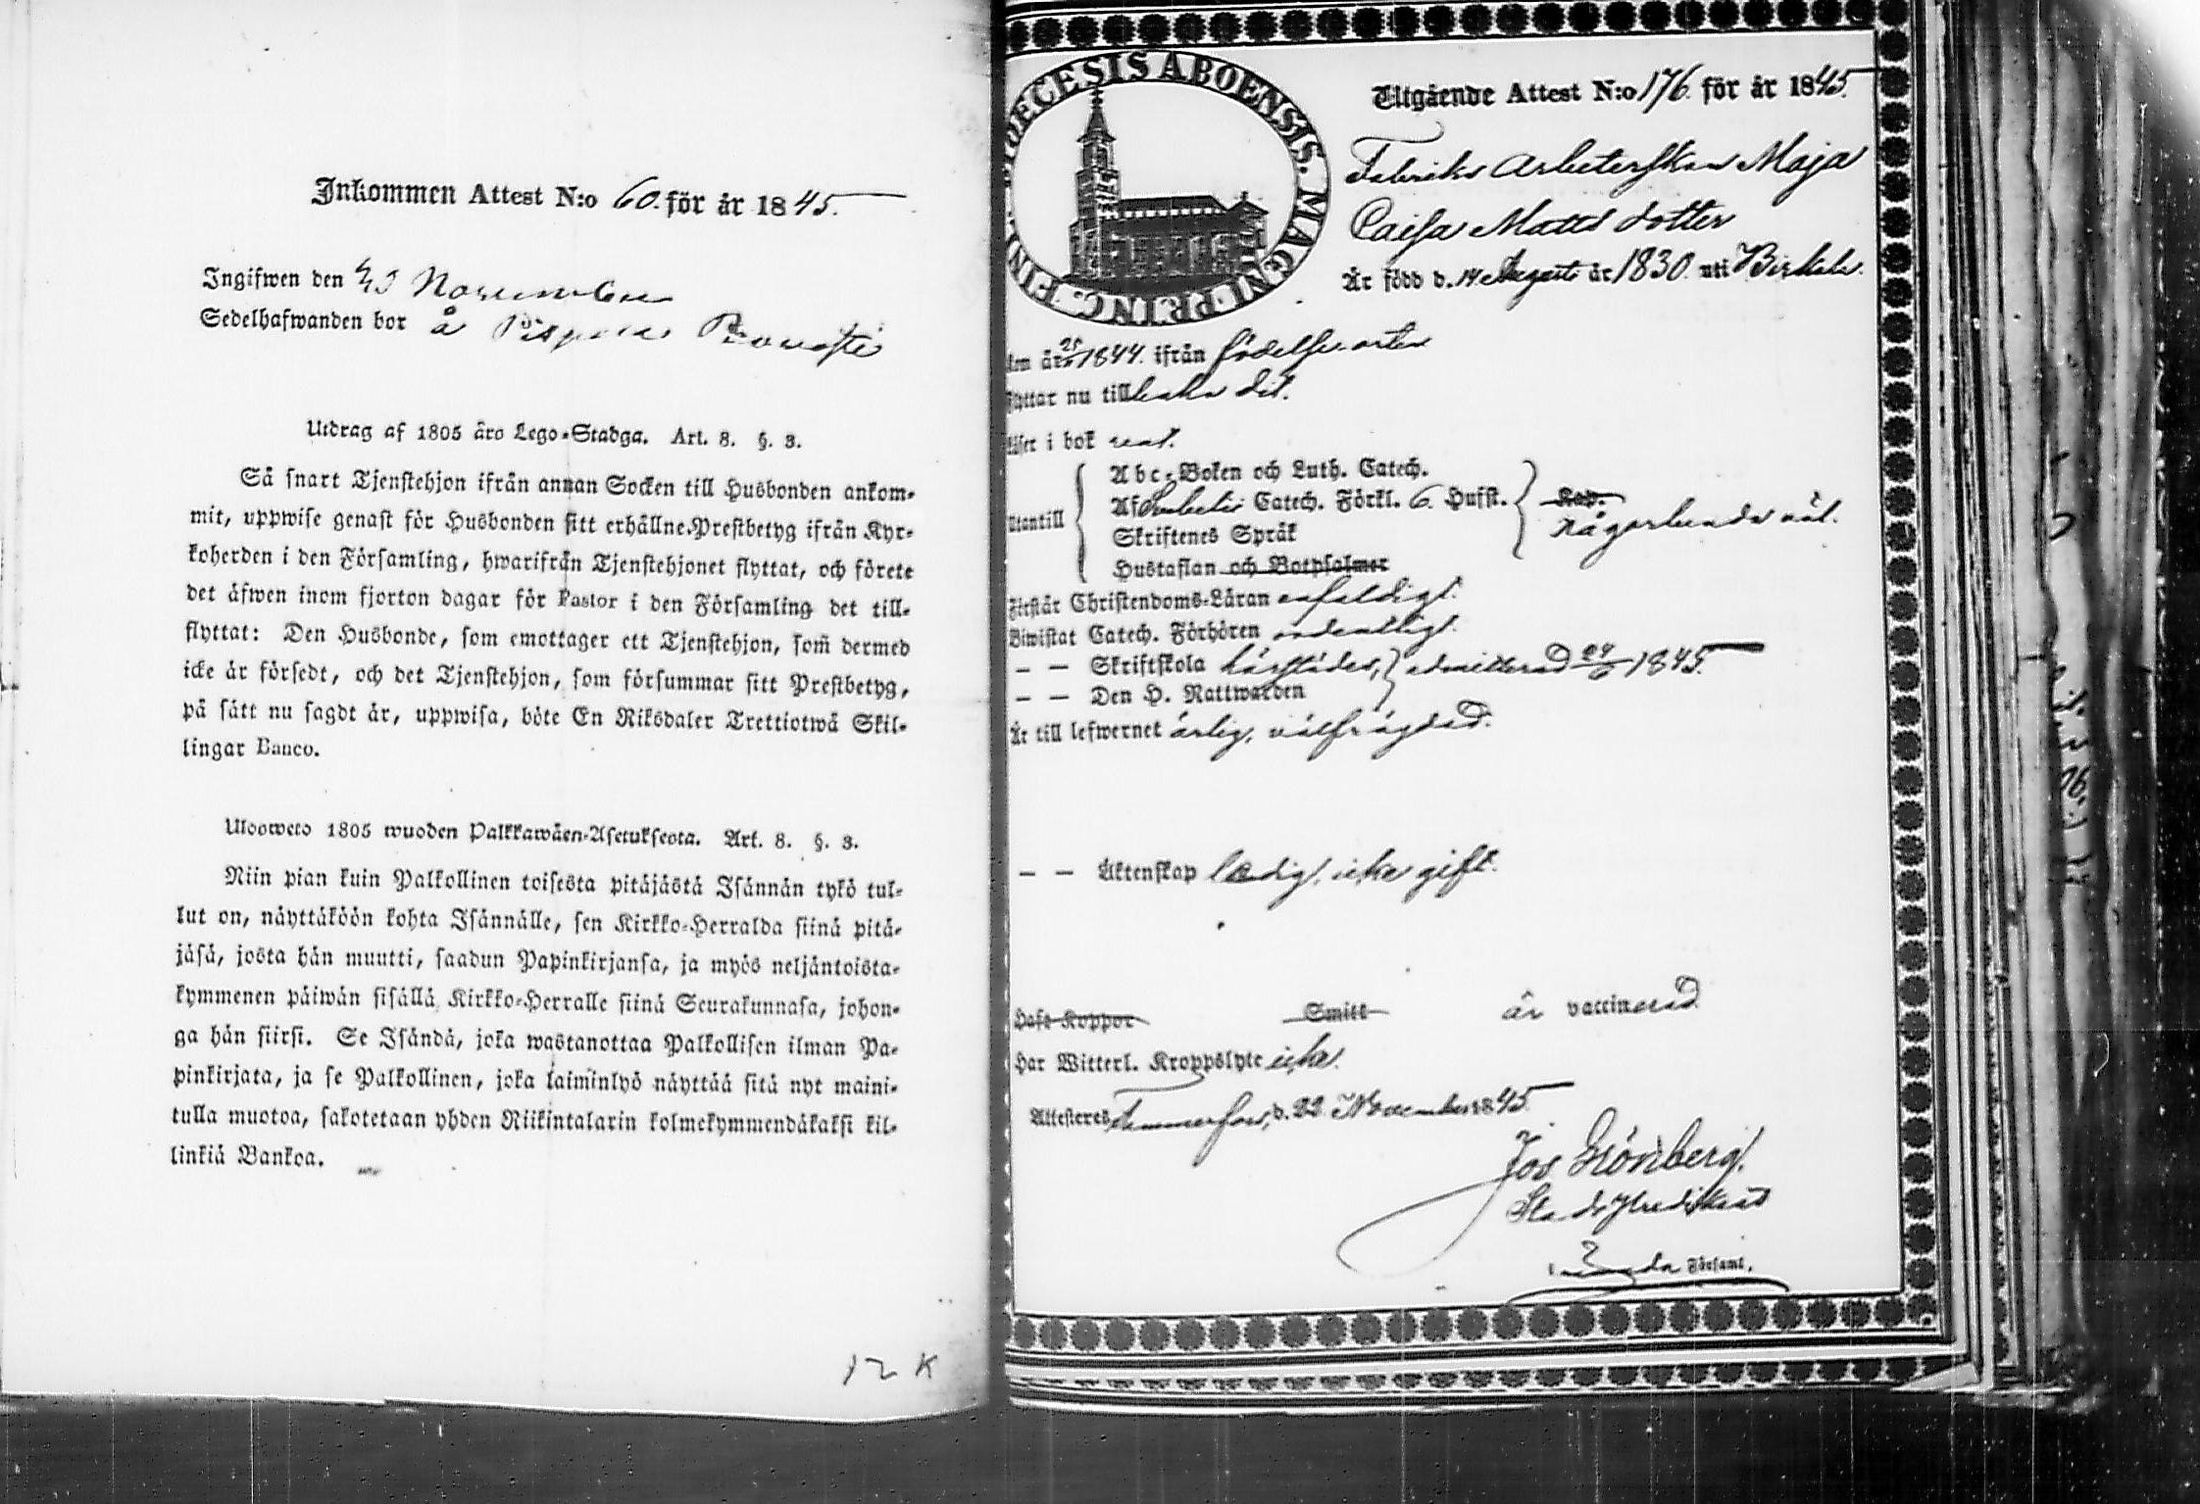 Inkommen Attest N:o 60. för år 1845.
Ingifwen den November
Sedelhafwanden bor å Pispala
Utdrag af 1805 års Lego-Stadga. Art. 8. §. 3.
Så snart Tjenstehjon ifrån annan Socken till Husbonden ankom-
mit, uppwise genast för Husbonden sitt erhållne Prestbetyg ifrån Kyr-
koherden i den Församling, hwarifrån Tjenstehjonet flyttat, och förete
det äfwen inom fjorton dagar för Pastor i den Församling det till-
flyttat: Den Husbonde, som emottager ett Tjenstehjon, som dermed
icke är försedt, och det Tjenstehjon, som försummar sitt Prestbetyg,
på sätt nu sagdt är, uppwisa, böte En Riksdaler Trettiotwå Skil-
lingar Banco.
Ulosweto 1805 wuoden Palkkawäen-Asetuksesta. Art. 8. §. 3.
Niin pian kuin Palkollinen toisesta pitäjästä Isännän tykö tul-
lut on, näyttäköön kohta Isännälle, sen Kirkko-Herralda siinä pitä-
jäsä, josta hän muutti, saadun Papinkirjansa, ja myös neljäntoista-
kymmenen päiwän sisällä Kirkko-Herralle siinä Seurakunnasa, johon-
ga hän siirsi. Se Isändä, joka wastanottaa Palkollisen ilman Pa-
pinkirjata, ja se Palkollinen, joka laiminlyö näyttää sitä nyt maini-
tulla muotoa, sakotetaan yhden Riikintalarin kolmekymmendäkaksi kil-
linkiä Bankoa.
12 K
DIŒCESIS ABOENSIS. MAGNI PRINC. FINL.
Utgående Attest N:o 176. för år 1845.
Fabriks Arbeterskan Maja
Caisa Matts dotter
Är född d. 14 Augusti år 1830. uti Birkala.
kom år 1844. ifrån födelse orten
flyttar nu till baka dit.
Läser i bok rent.
Utantill
Abc-Boken och Luth. Catech.
Af Svebelii Catech. Förkl. 6. Hufst.
Skriftenes Språk
Hustaflan och Botpsalmer
Kap.
någorlunda väl.
Förstår Christendoms-Läran enfaldigt.
Biwistat Catech. Förhören ordentligt.
— — Skriftskola härstädes, admitterad 24/6 1845.
— — Den H. Nattwarden
Är till lefwernet ärlig, välfrägdad.
— — Äktenskap ledig, icke gift.
Haft Koppor Smitt är vaccinerad
Har Witterl. Kroppslyte icke.
Attesteres Tammerfors, d. 22 November 1845.
Jos Grönberg.
Stads Predikant
Församl.